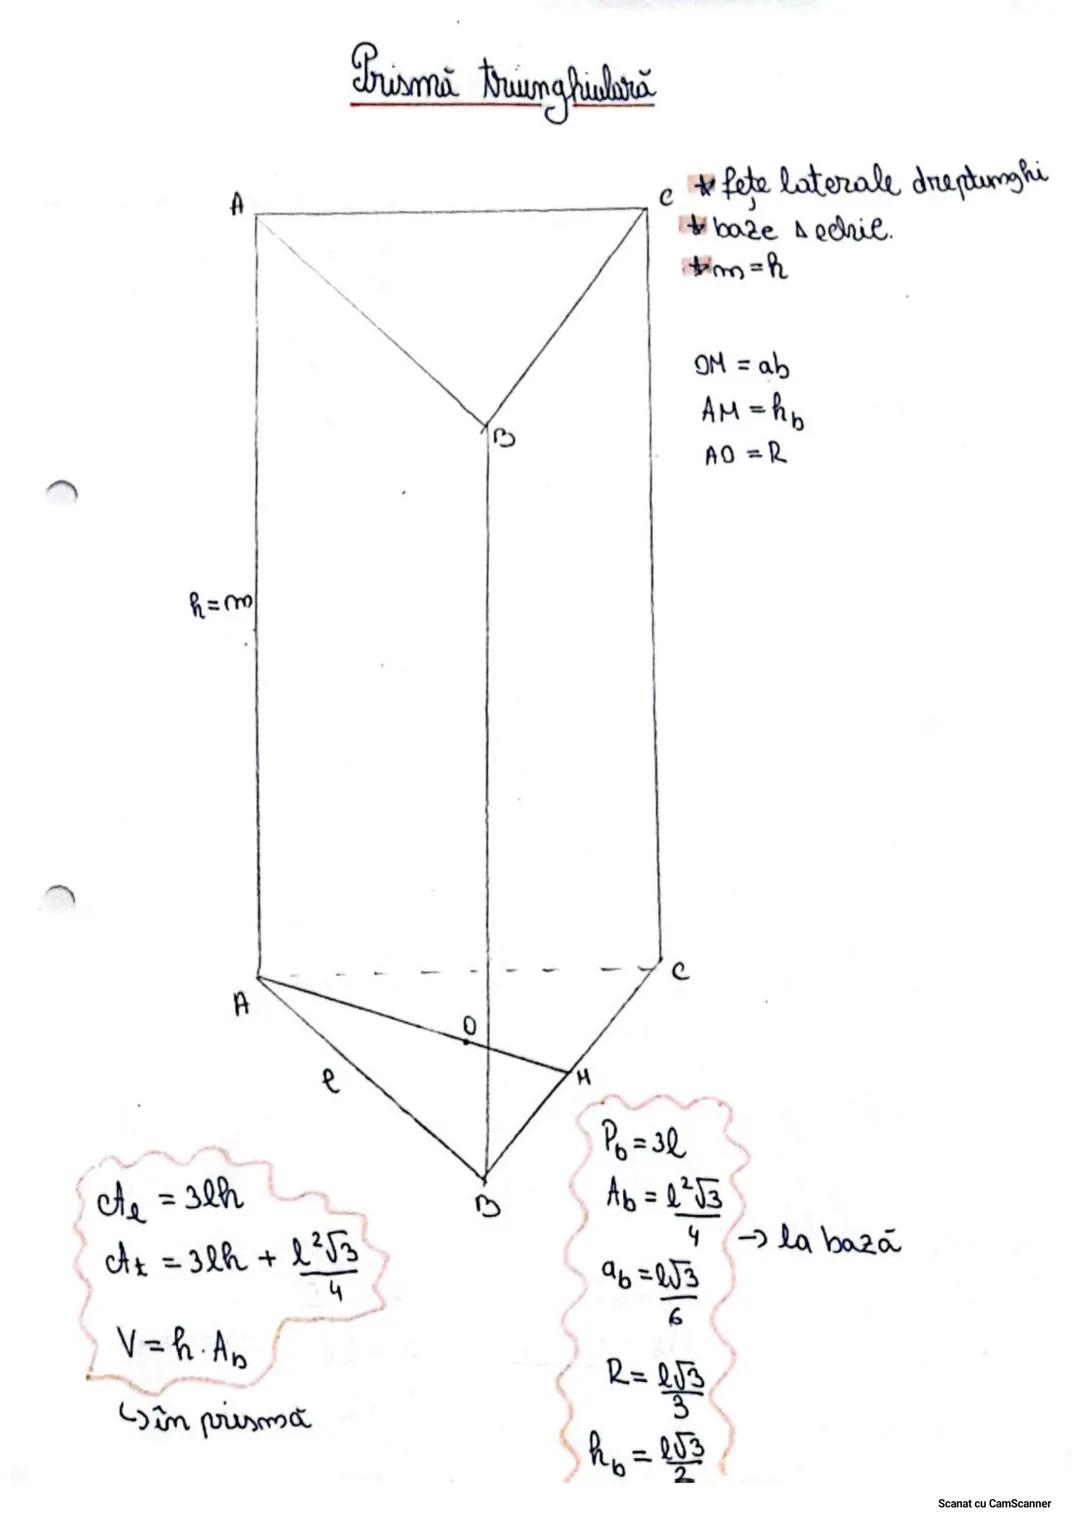 Prismă triunghiulară
A
C
* fețe laterale dreptunghi
* baze Δ echil.
* m = h
OM = ab
AM = hb
AO = R
B
h = m
A
C
O
M
l
B
Al = 3lh
At = 3lh + l²√3/4
V = h · Ab
↳ în prismă
Pb = 3l
Ab = l²√3/4
→ la bază
ab = l√3/6
R = l√3/3
hb = l√3/2
Scanat cu CamScanner